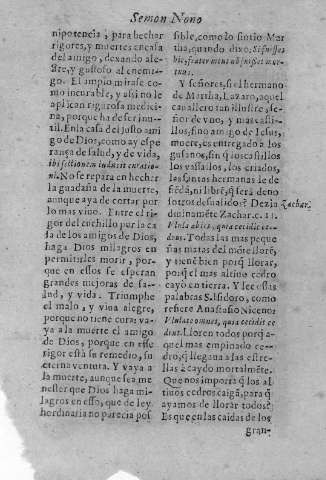 Semon Nono
nipotencia, para hechar
rigores, y muertes en casa
del amigo, dexando ale-
gre, y gustoso al enemi-
go. El impio mirase co-
mo incurable, y assi no le
aplican rigurosa medici-
na, porque ha de ser inu-
til. En la casa del justo ami
go de Dios, como ay espe-
rança de salud, y de vida,
ibi sectionem induxit curatio-
ni. No se repara en hechar
la guadaña de la muerte,
aunque aya de cortar por
lo mas vivo. Entre el ri-
gor del cuchillo por la ca
sa de los amigos de Dios,
haga Dios milagros en
permitirles morir, por-
que en essos se esperan
grandes mejoras de sa-
lud, y vida. Triumphe
el malo, y viva alegre,
porque no tiene cora: va-
ya a la muerte el amigo
de Dios, porque en esse
rigor está su remedio, su
eterna ventura. Y vaya a
la muerte, aunque sea me
nester que Dios haga mi-
lagros en esso, que de ley
hordinaria no parecia pos
sible, como lo sintio Mar
tha, quando dixo: Si fuisses
hic, frater meus non fuisset mor
tuus.
Y señores, si el hermano
de Martha, Lazaro, aquel
cavallero tan illustre, se-
ñor de vno, y mas casti-
llos, sino amigo de Iesus,
muere, es entregado à los
gusanos, sin q̃ los castillos
los vassallos, los criados,
las santas hermanas le de
fiẽdã, ni librẽ, q̃ será de no
sotros desvalidos? Dezia
divinamẽte Zachar. c. 11.
Zachar.
Vlula abies, quia cecidit ce-
drus. Todas las mas peque
ñas matas del mõte llorẽ,
y tienẽ bien porq̃ llorar,
porq̃ el mas altino cedro
cayó en tierra. Y lee estas
palabras S. Isidoro, como
refiere Anastasio Niceno:
Vlulate omnes, quia cecidit ce
drus. Lloren todos porq̃ a-
quel mas empinado ce-
dro, q̃ llegava a las estre-
llas à caydo mortalmẽte.
Que nos importa q̃ los al
tivos cedros caigã, para q̃
ayamos de llorar todos?
Es que en las caidas de los
gran-